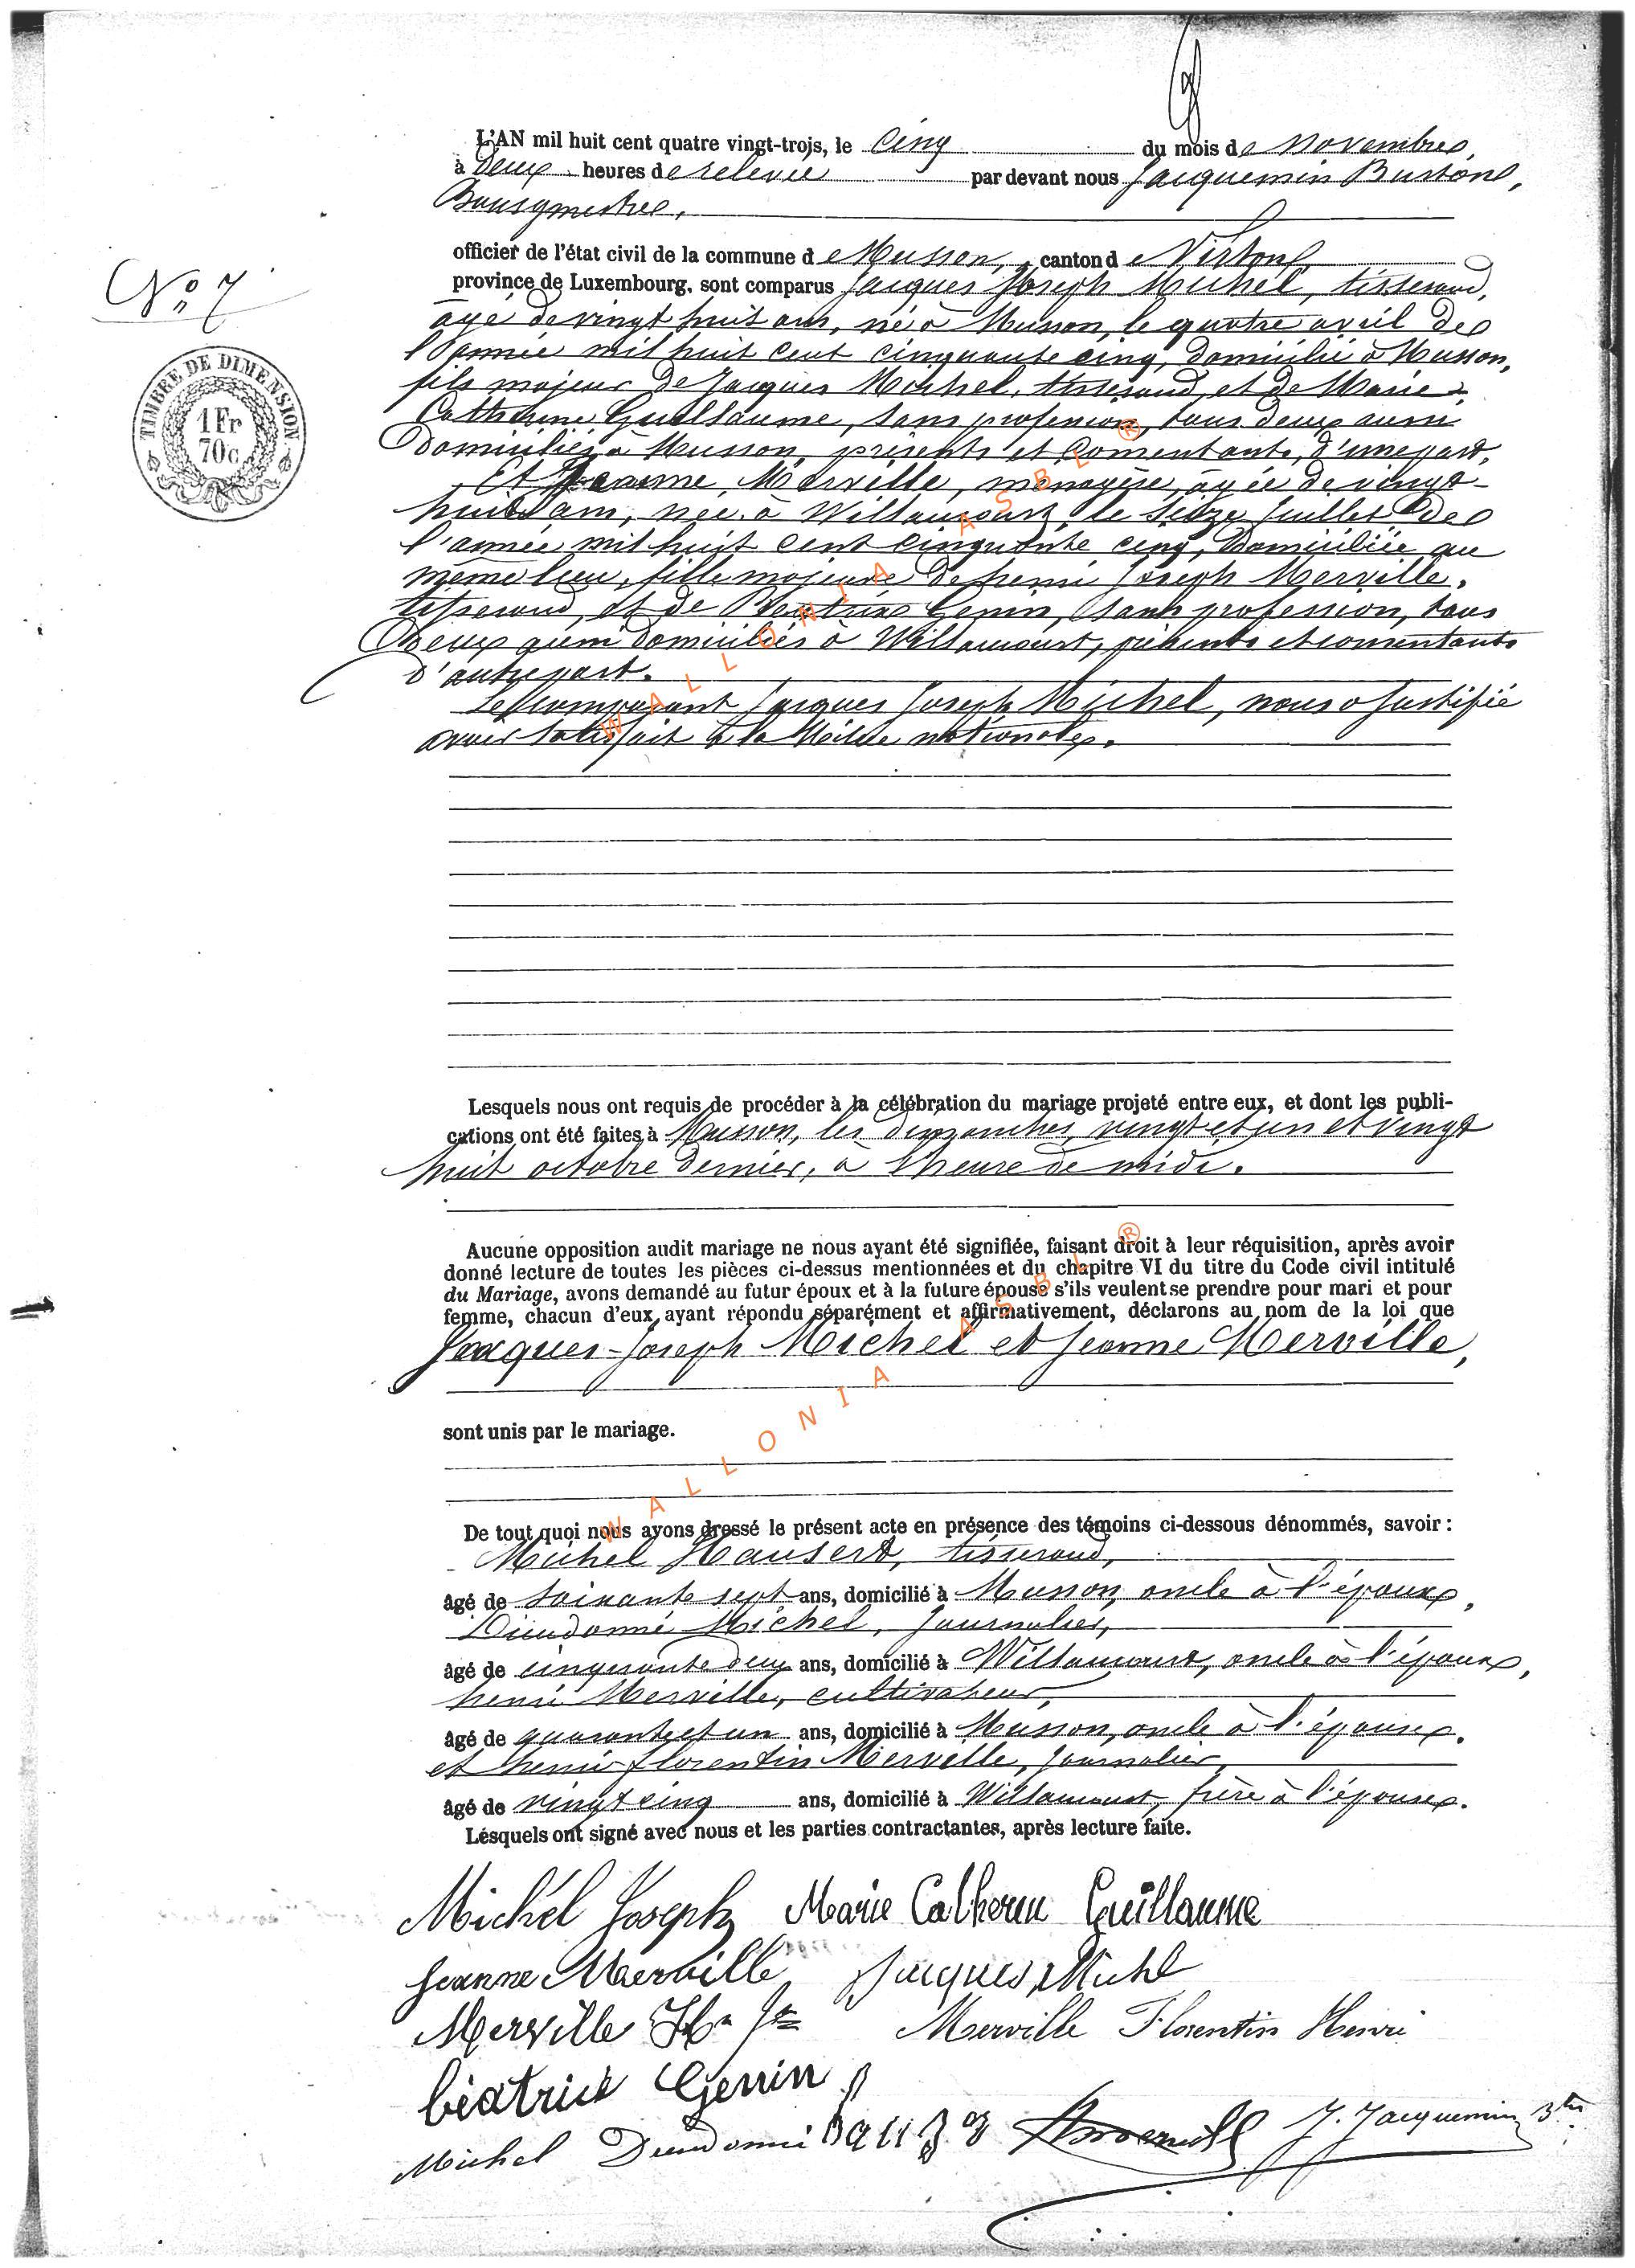 L'AN mil huit cent quatre vingt-trois, le cinq du mois de novembre,
à deux heures de relevée par devant nous Jacquemin Buston,
Bourgmestre,
officier de l'état civil de la commune de Musson, canton de Virton,
province de Luxembourg, sont comparus Jacques Joseph Michel, tisserand,
âgé de vingt huit ans, né à Musson, le quatre avril de
l'année mil huit cent cinquante cinq, domicilié à Musson,
fils majeur de Jacques Michel, tisserand, et de Marie-
Catherine Guillaume, sans profession, tous deux aussi
domiciliés à Musson, présents et consentants, d'une part,
Et Jeanne Merville, ménagère, âgée de vingt-
huit ans, née à Willancourt, le seize juillet de
l'année mil huit cent cinquante cinq, domiciliée au
même lieu, fille majeure de henri Joseph Merville,
tisserand, et de Béatrice Genin, sans profession, tous
deux aussi domiciliés à Willancourt, présents et consentants
d'autre part.
Le comparant Jacques Joseph Michel, nous a justifié
avoir satisfait à la Milice nationale.
No 7
TIMBRE DE DIMENSION
1 Fr
70 c
Lesquels nous ont requis de procéder à la célébration du mariage projeté entre eux, et dont les publi-
cations ont été faites à Musson, les dimanches vingt et un et vingt
huit octobre dernier, à l'heure de midi.
Aucune opposition audit mariage ne nous ayant été signifiée, faisant droit à leur réquisition, après avoir
donné lecture de toutes les pièces ci-dessus mentionnées et du chapitre VI du titre du Code civil intitulé
du Mariage, avons demandé au futur époux et à la future épouse s'ils veulent se prendre pour mari et pour
femme, chacun d'eux ayant répondu séparément et affirmativement, déclarons au nom de la loi que
Jacques-Joseph Michel et Jeanne Merville,
sont unis par le mariage.
De tout quoi nous avons dressé le présent acte en présence des témoins ci-dessous dénommés, savoir :
Michel Hausert, tisserand,
âgé de soixante sept ans, domicilié à Musson, oncle à l'époux,
Dieudonné Michel, journalier,
âgé de cinquante deux ans, domicilié à Willancourt, oncle à l'époux,
henri Merville, cultivateur,
âgé de quarante et un ans, domicilié à Musson, oncle à l'épouse,
et henri florentin Merville, journalier,
âgé de vingt cinq ans, domicilié à Willancourt, frère à l'épouse.
Lesquels ont signé avec nous et les parties contractantes, après lecture faite.
Michel Joseph Marie Catherin Guillaume
Jeanne Merville Jacques Michel
Merville Hri Jh Merville Florentin Henri
béatrice Genin
Michel Dieudonné J. Jacquemin Btn
WALLONIA ASBL ®
WALLONIA ASBL ®